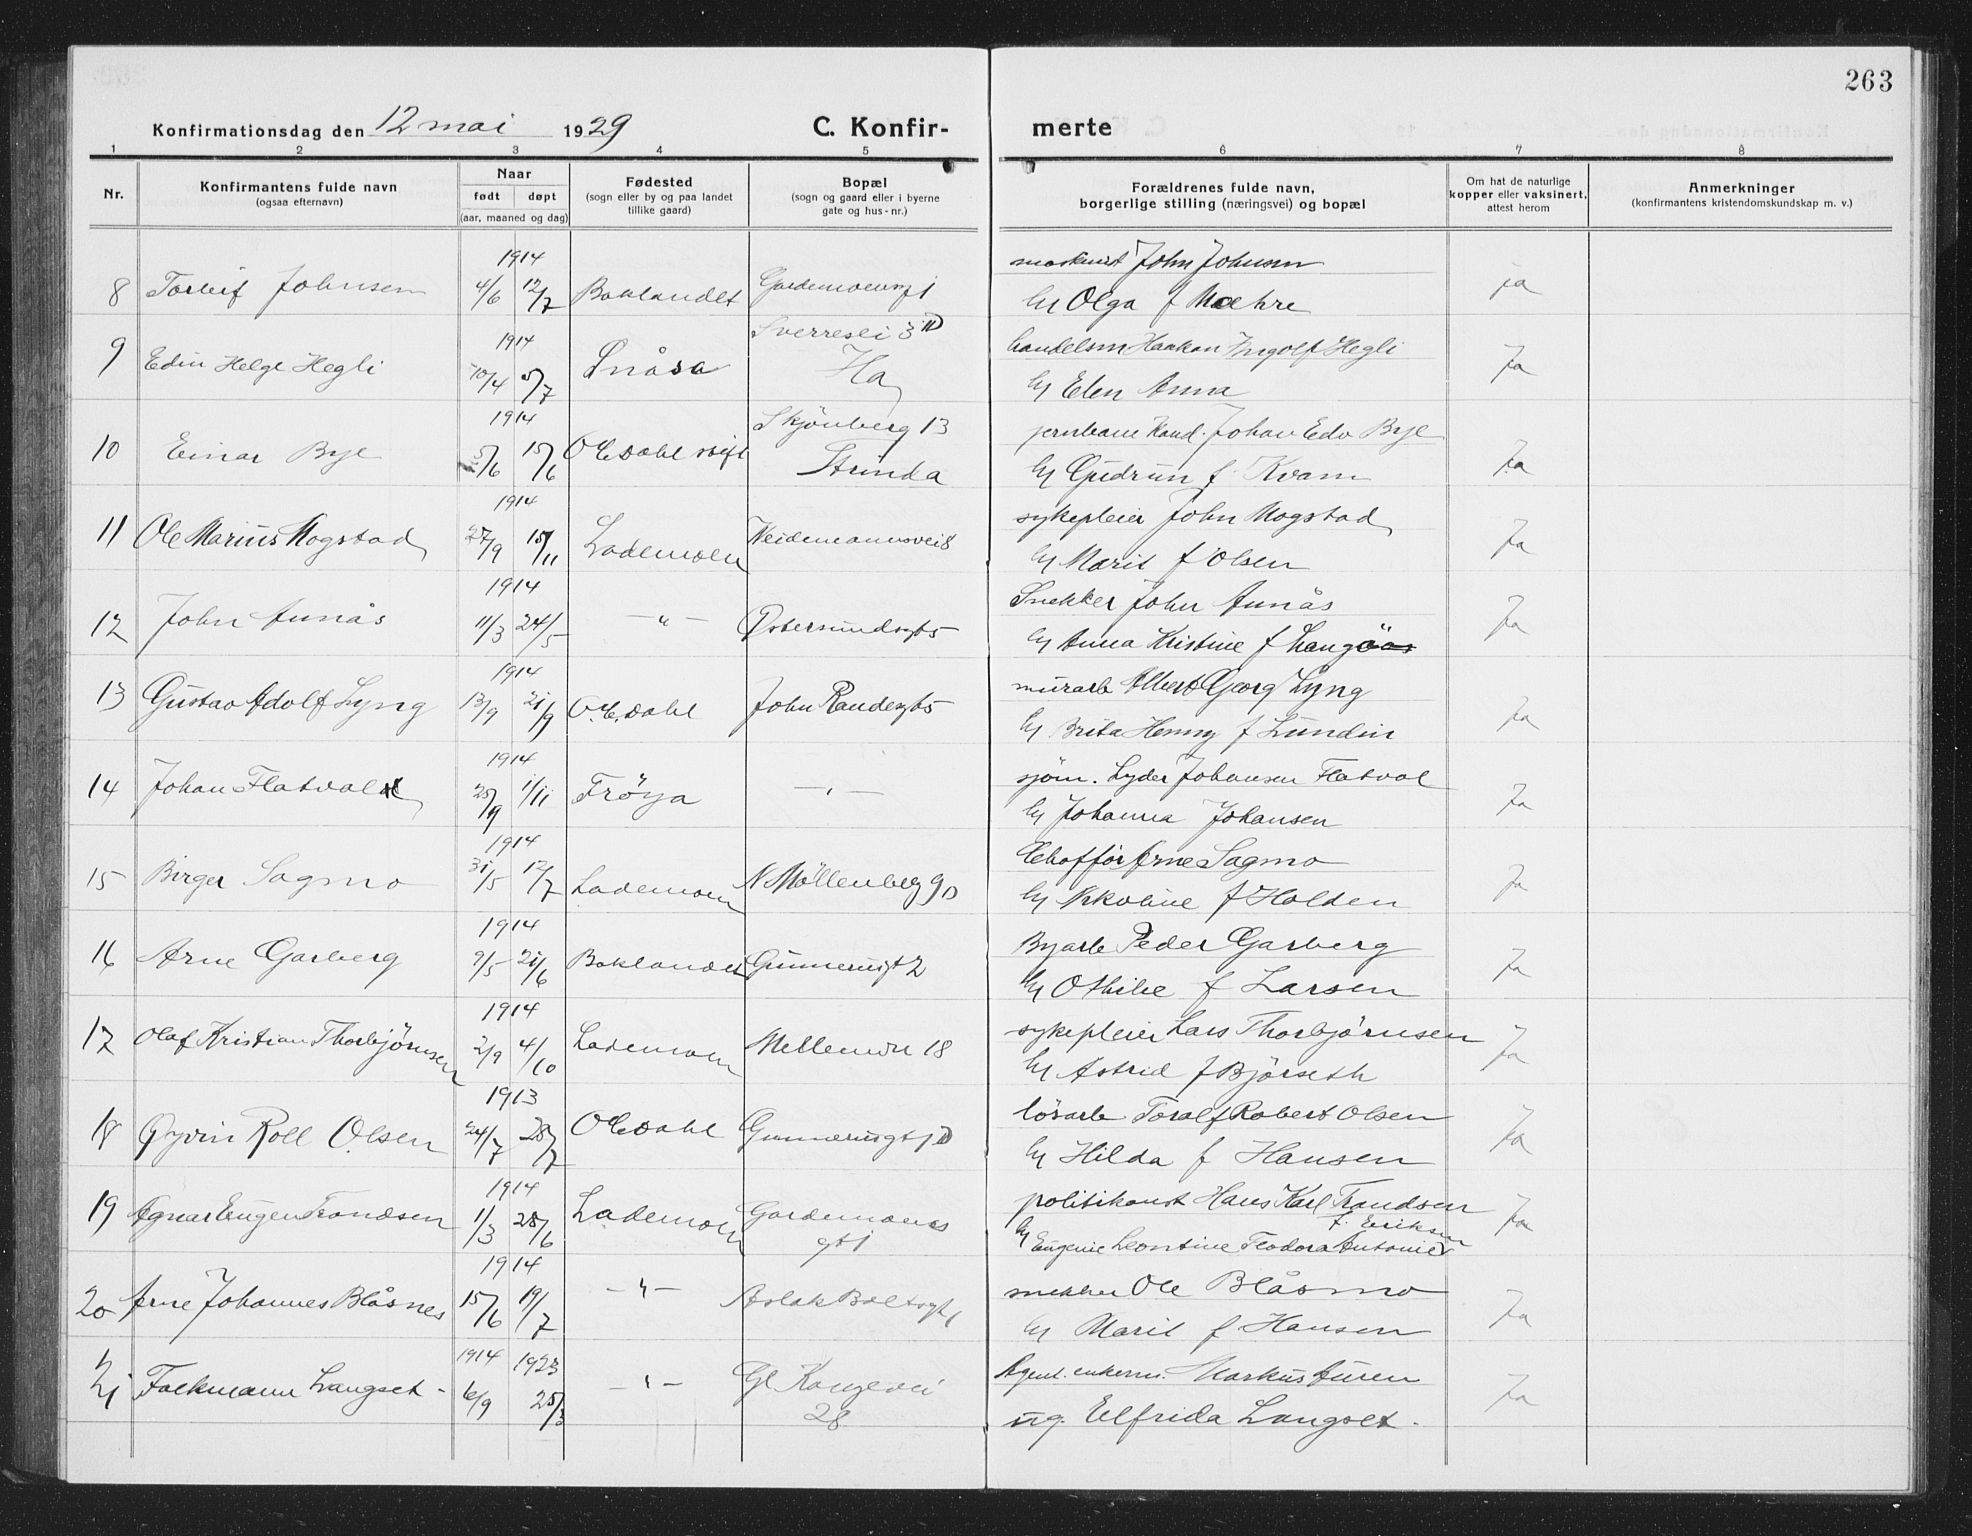 263
Konfirmationsdag den 12 mai 1929
C. Konfir-merte
1 2 3 4 5 6 7 8
Nr.
Konfirmantens fulde navn
(ogsaa efternavn)
Naar
født døpt
(aar, maaned og dag)
Fødested
(sogn eller by og paa landet
tillike gaard)
Bopæl
(sogn og gaard eller i byerne
gate og hus-nr.)
Forældrenes fulde navn,
borgerlige stilling (næringsvei) og bopæl
Om hat de naturlige
kopper eller vaksinert,
attest herom
Anmerkninger
(konfirmantens kristendomskundskap m. v.)
1914
8 Torleif Johnsen 4/6 12/7 Baklandet Gardemoensgt 1
maskinist John Johnsen
Olga f Mæhre
ja
Sverresli 3
1914
9 Edin Helge Hegli 10/4 5/7 Snåsa Ha
handelsm Haakon Ingolf Hegli
Elen Anna
Ja
1914
Skjönberg 13
10 Einar Bye 5/6 15/6 O E Dahl stift Strinda
jernbane kond. Johan Edv Bye
Gudrun f Kvam
Ja
1914
11 Ole Marius Mogstad 27/9 15/11 Lademoen Weidemannsvei 8
sykepleier John Mogstad
Marit f Olsen
Ja
1914
12 John Aunås 11/3 24/5 — " — Østersundsgt 5
Snekker John Aunås
Anna Kristine f Langöas
Ja
1914
13 Gustav Adolf Lyng 13/9 21/9 O.E. Dahl John Randesgt 5
murarb Albert Georg Lyng
Brita Henny f Lundin
Ja
1914
14 Johan Flatval 25/9 1/11 Fröya — " —
sjöm. Lyder Johansen Flatval
Johanna Johansen
Ja
1914
15 Birger Sagmo 31/5 12/7 Lademoen N Möllenberg 9 D
Chofför Arne Sagmo
Nikoline f Holden
Ja
1914
16 Arne Garberg 9/5 21/6 Baklandet Gunnerusgt 2
Byarb Peder Garberg
Othilie f Larsen
Ja
1914
17 Olaf Kristian Thorbjörnsen 2/9 4/10 Lademoen Mellemila 18
sykepleier Lars Thorbjörnsen
Astrid f Björseth
Ja
1913
18 Øyvin Roll Olsen 24/7 28/7 O E Dahl Gunnerusgt
lösarb Toralf Robert Olsen
Hilda f Hansen
Ja
1914
19 Agnar Eugen Trondsen 1/3 28/6 Lademoen Gardemoens
gt 1
politikonst Hans Karl Trondsen
f. Eriksen
Eugenie Leontine Teodora Antonie
Ja
1914
20 Arne Johannes Blåsnes 15/6 19/7 — " — Aslak Boltsgt
snekker Ole Blåsmo
Marit f Hansen
Ja
1914 1923
21 Folkmann Langset 6/9 25/3 — " — Gl Kongevei
28
Agent. enkem. Markus Auren
ug. Elfrida Langset.
Ja